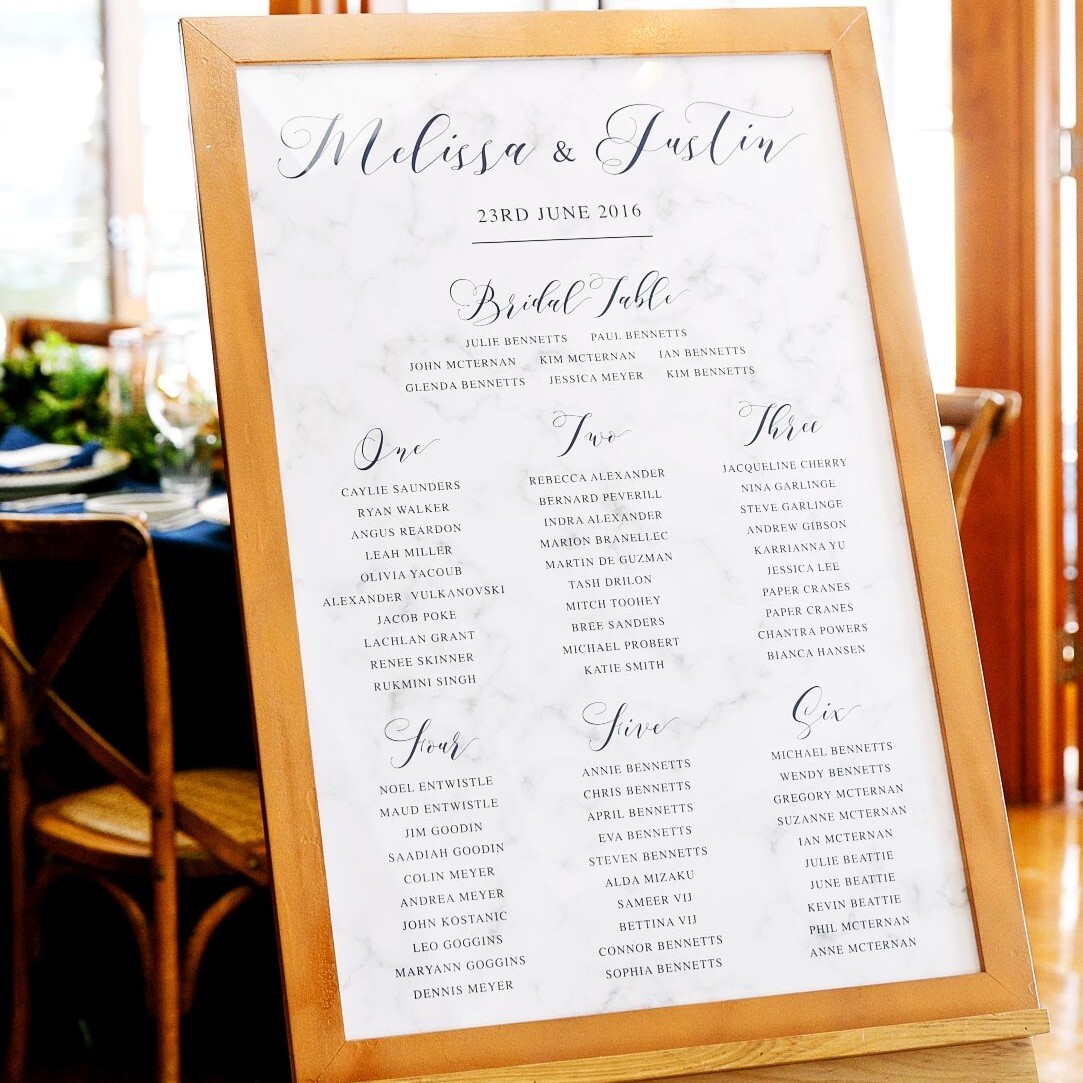 Melissa & Justin
23RD JUNE 2016
Bridal Table
JULIE BENNETTS PAUL BENNETTS
JOHN MCTERNAN KIM MCTERNAN IAN BENNETTS
GLENDA BENNETTS JESSICA MEYER KIM BENNETTS
One
CAYLIE SAUNDERS
RYAN WALKER
ANGUS REARDON
LEAH MILLER
OLIVIA YACOUB
ALEXANDER VULKANOVSKI
JACOB POKE
LACHLAN GRANT
RENEE SKINNER
RUKMINI SINGH
Two
REBECCA ALEXANDER
BERNARD PEVERILL
INDRA ALEXANDER
MARION BRANELLEC
MARTIN DE GUZMAN
TASH DRILON
MITCH TOOHEY
BREE SANDERS
MICHAEL PROBERT
KATIE SMITH
Three
JACQUELINE CHERRY
NINA GARLINGE
STEVE GARLINGE
ANDREW GIBSON
KARRIANNA YU
JESSICA LEE
PAPER CRANES
PAPER CRANES
CHANTRA POWERS
BIANCA HANSEN
Four
NOEL ENTWISTLE
MAUD ENTWISTLE
JIM GOODIN
SAADIAH GOODIN
COLIN MEYER
ANDREA MEYER
JOHN KOSTANIC
LEO GOGGINS
MARYANN GOGGINS
DENNIS MEYER
Five
ANNIE BENNETTS
CHRIS BENNETTS
APRIL BENNETTS
EVA BENNETTS
STEVEN BENNETTS
ALDA MIZAKU
SAMEER VIJ
BETTINA VIJ
CONNOR BENNETTS
SOPHIA BENNETTS
Six
MICHAEL BENNETTS
WENDY BENNETTS
GREGORY MCTERNAN
SUZANNE MCTERNAN
IAN MCTERNAN
JULIE BEATTIE
JUNE BEATTIE
KEVIN BEATTIE
PHIL MCTERNAN
ANNE MCTERNAN